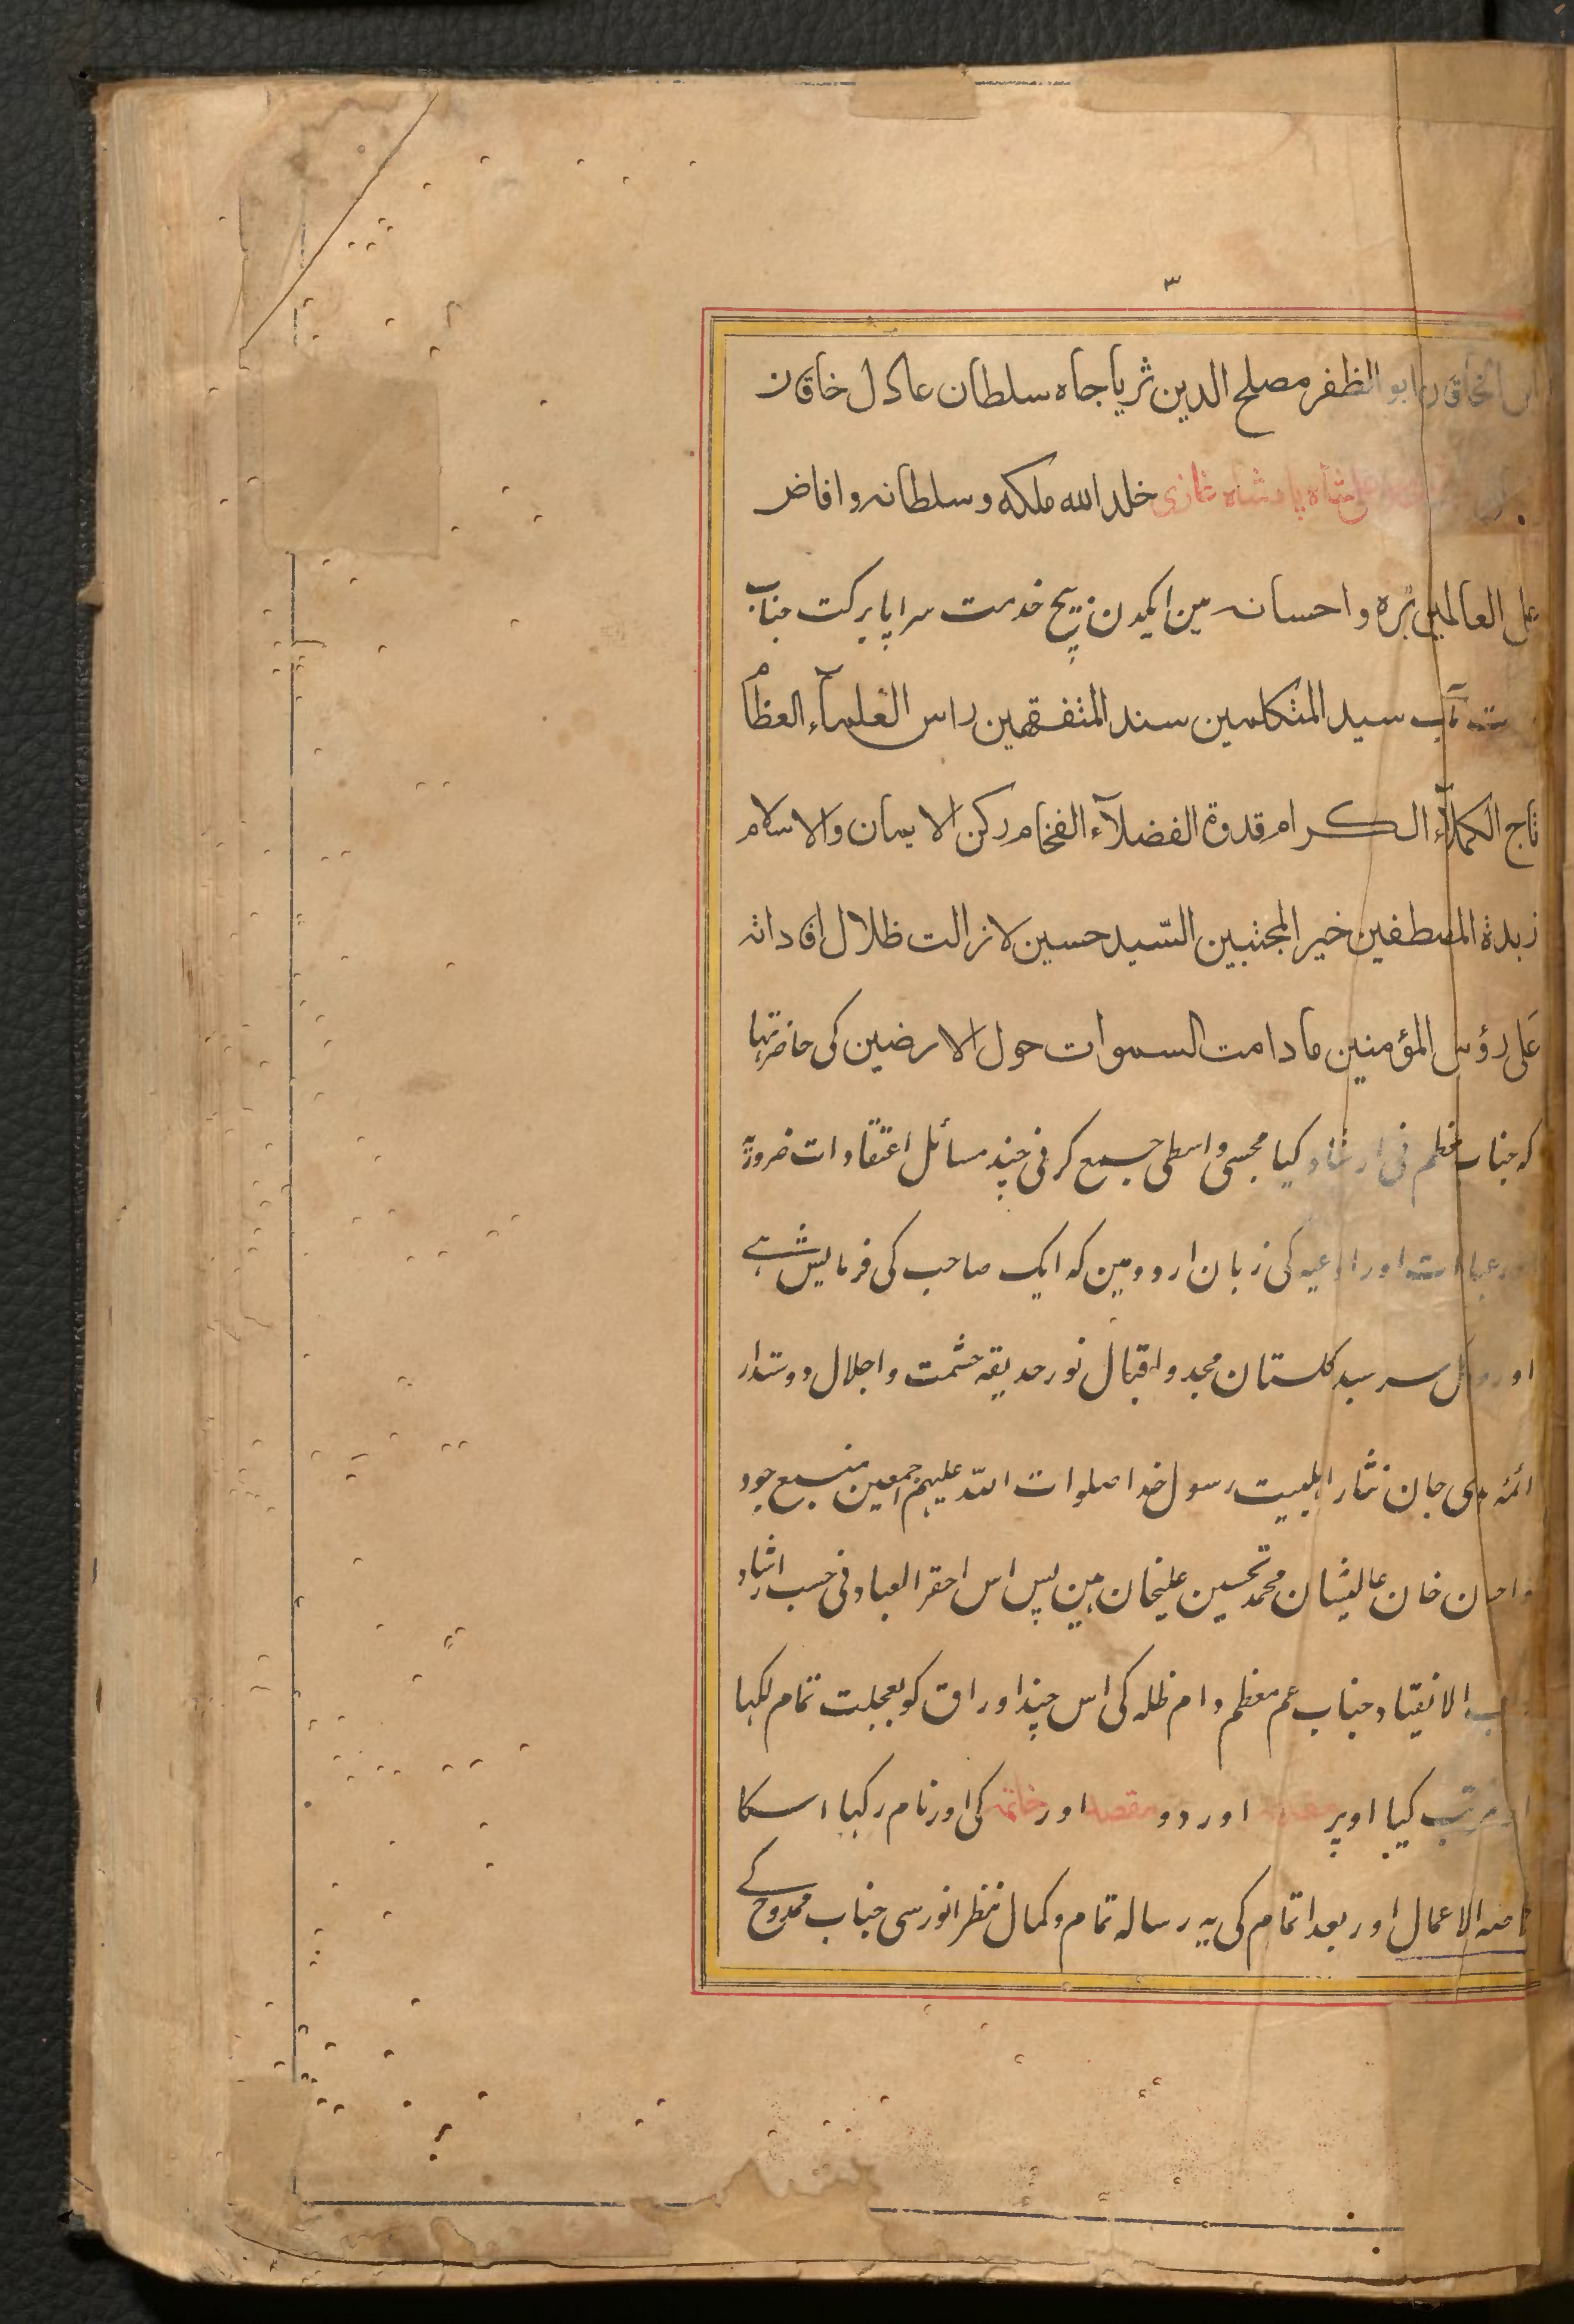 ۳
ابن الخاقان ابو الظفر مصلح الدين ثريا جاه سلطان عادل خاقان
علی شاه پادشاه غازی خلد الله ملكه و سلطانه و افاض
على العالمين بره و احسانه مین ایکدن بیچ خدمت سراپا برکت جناب
مآب سيد المتكلمين سند المتفقهين راس العلمآء العظام
تاج الكملآء الكرام قدوة الفضلآء الفخام ركن الايمان والاسلام
زبدة المصطفين خير المجتبين السّيد حسين لا زالت ظلال افاداته
على رؤس المؤمنين ما دامت السموات حول الارضين کی حاضر تہا
کہ جناب معظم نی ارشاد کیا مجسی واسطی جمع کرنی چند مسائل اعتقادات ضروریّہ
اور عبادات اور ادعیہ کی زبان اردو مین کہ ایک صاحب کی فرمایش ہے
اور گل سرسبد گلستان مجد و اقبال نور حدیقہ حشمت و اجلال دوستدار
ائمّہ ہدی جان نثار اہلبیت رسول خدا صلوات اللہ علیہم اجمعین منبع جود
و احسان خان عالیشان محمد تحسین علیخان ہین پس اس احقر العباد نی حسب ارشاد
الانقیاد جناب عم معظم دام ظلہ کی اس چند اوراق کو بعجلت تمام لکہا
اور مرتب کیا اوپر مقدمہ اور دو مقصد اور خاتمہ کی اور نام رکہا اسکا
الاعمال اور بعد اتمام کی یہ رسالہ تمام و کمال نظر انور سی جناب ممدوح کے